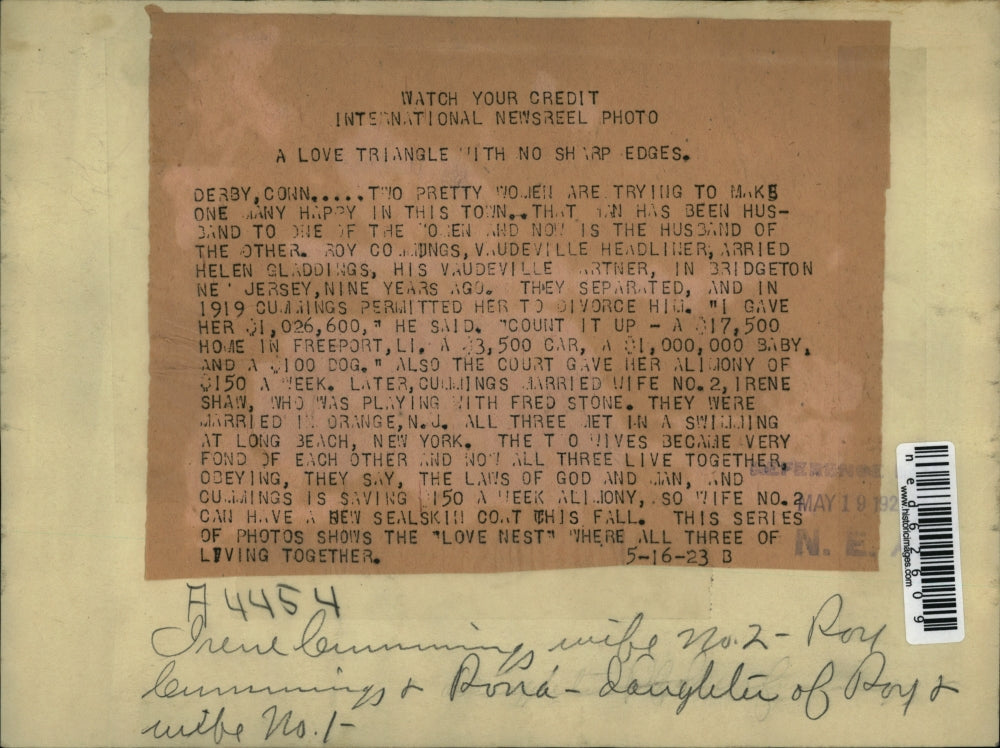 WATCH YOUR CREDIT
INTERNATIONAL NEWSREEL PHOTO
A LOVE TRIANGLE WITH NO SHARP EDGES.
DERBY, CONN..... TWO PRETTY WOMEN ARE TRYING TO MAKE
ONE MANY HAPPY IN THIS TOWN.. THAT MAN HAS BEEN HUS-
BAND TO ONE OF THE WOMEN AND NOW IS THE HUSBAND OF
THE OTHER. ROY CUMMINGS, VAUDEVILLE HEADLINER, MARRIED
HELEN GLADDINGS, HIS VAUDEVILLE PARTNER, IN BRIDGETON
NEW JERSEY, NINE YEARS AGO. THEY SEPARATED, AND IN
1919 CUMMINGS PERMITTED HER TO DIVORCE HIM. "I GAVE
HER $1,026,600," HE SAID. "COUNT IT UP - A $17,500
HOME IN FREEPORT, LI. A $3,500 CAR, A $1,000,000 BABY,
AND A $100 DOG." ALSO THE COURT GAVE HER ALIMONY OF
$150 A WEEK. LATER, CUMMINGS MARRIED WIFE NO. 2, IRENE
SHAW, WHO WAS PLAYING WITH FRED STONE. THEY WERE
MARRIED IN ORANGE, N.J. ALL THREE MET IN A SWIMMING
AT LONG BEACH, NEW YORK. THE TWO WIVES BECAME VERY
FOND OF EACH OTHER AND NOW ALL THREE LIVE TOGETHER,
OBEYING, THEY SAY, THE LAWS OF GOD AND MAN, AND
CUMMINGS IS SAVING $150 A WEEK ALIMONY, SO WIFE NO. 2
CAN HAVE A NEW SEALSKIN COAT THIS FALL. THIS SERIES
OF PHOTOS SHOWS THE "LOVE NEST" WHERE ALL THREE OF
LIVING TOGETHER. 5-16-23 B
REFERENCE
MAY 19 192
N. E. A
www.historicimages.com
ned62609
A 4454
Irene Cummings, wife no. 2 - Roy
Cummings & - daughter of Roy &
wife No. 1 -